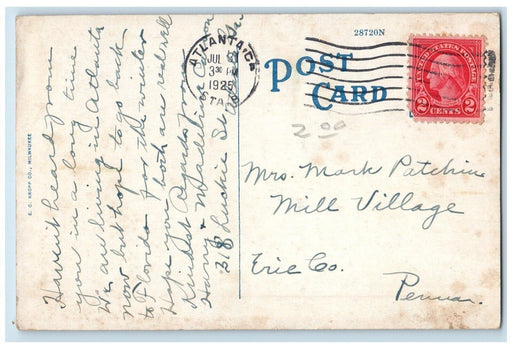 Haven't heard from
you in a long time
We are living in Atlanta
now but hope to go back
to Florida for the winter
Hope you both are real well
Kindest Regards from
& Madeline
318 Luckie St.
E. C. KROPP CO., MILWAUKEE
28720N
POST
CARD
ATLANTA, GA.
JUL
3 30 PM
1925
UNITED STATES POSTAGE
2 2
CENTS
2.00
Mrs. Mark Patchin
Mill Village
Erie Co.
Penna.